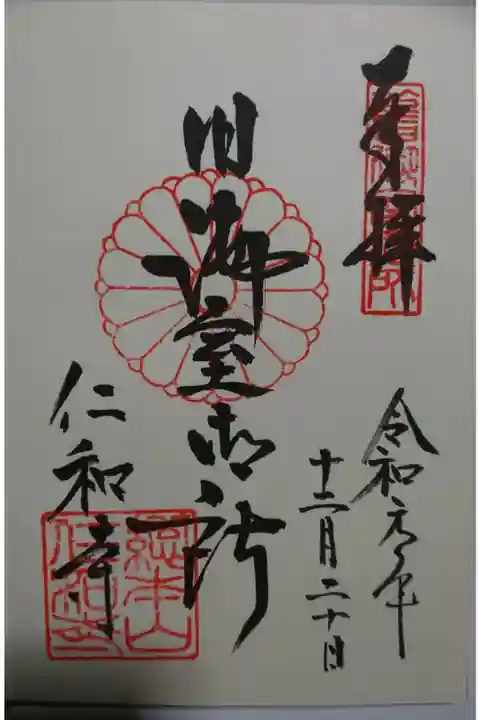 奉拝
令和元年
十二月二十日
旧御室御所
仁和寺
總本山
仁和寺